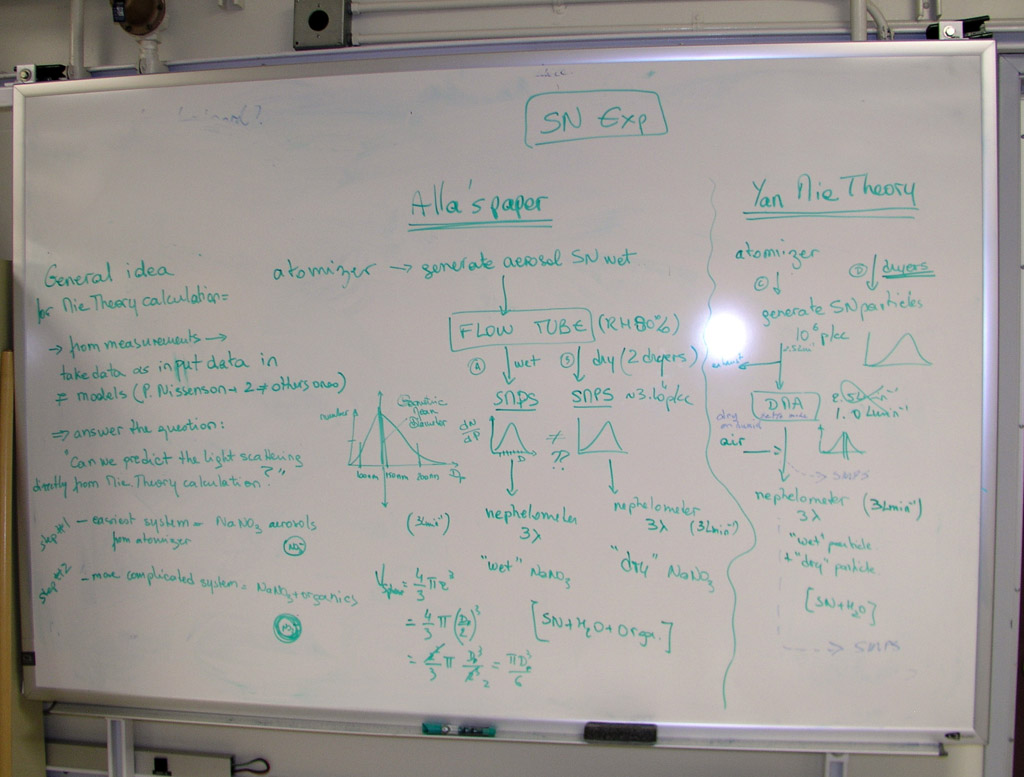 SN Exp
Alla's paper
General idea
for Mie Theory calculation=
→ from measurements →
take data as input data in
≠ models (P. Nissenson + 2 ≠ others ones)
⇒ answer the question:
"Can we predict the light scattering
directly from Mie Theory calculation?"
step #1 - easiest system = NaNO3 aerosols
from atomizer
NO3-
step #2 - more complicated system = NaNO3 + organics
atomizer → generate aerosol SN wet
FLOW TUBE (RH 80%)
a wet
b dry (2 dryers)
SMPS
SMPS ~3.10 p/cc
number
Geometric
Mean
Diameter
100nm 200nm Dp
dN
dP
D
≠
?
(3Lmin⁻¹)
nephelometer
3λ
nephelometer
3λ (3Lmin⁻¹)
"wet" NaNO3
"dry" NaNO3
[SN+H2O+Orga.]
V = 4/3 π r³
= 4/3 π (Dp/2)³
= 2²/3 π Dp³/2³ 2 = πDp³/6
Yan Mie Theory
atomizer
c
D dryers
generate SN particles
10⁶ p/cc
DMA
1.0 Lmin⁻¹
air
SMPS
nephelometer (3Lmin⁻¹)
3λ
"wet" particle
+ "dry" particle
[SN+H2O]
SMPS